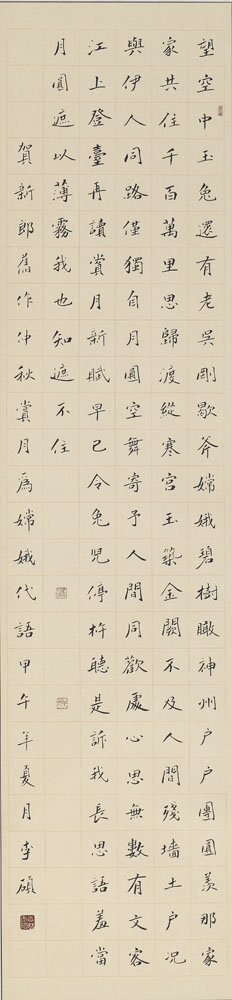 望空中玉兔還有老吳剛歇斧嫦娥碧樹瞰神州戶戶團圓羨那家
家共住千百萬里思歸渡縱寒宮玉築金闕不及人間殘墻土戶況
與伊人同路僅獨自月圓空舞寄予人間同歡處心思無數有文客
江上登臺再讀賞月新賦早已令兔兒停杵聽是訴我長思語羞當
月圓遮以薄霧我也知遮不住
賀新郎舊作仲秋賞月為嫦娥代語甲午年夏月李碩